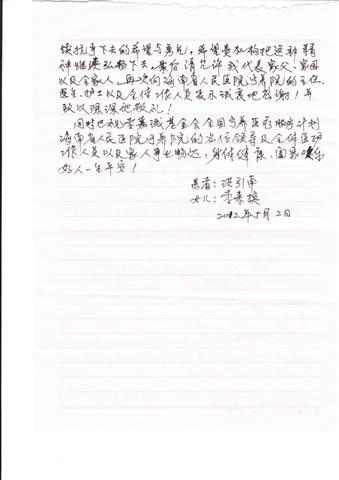 续抗争下去的希望与勇气。希望贵机构把这种精
神继续弘扬下去。最后请允许我代表家父、家母
以及全家人，再次向海南省人民医院宁养院的主任、
医生、护士以及全体工作人员表示诚衷地感谢！并
致以深深的敬礼！
同时也祝李嘉诚基金会全国宁养医疗服务计划
海南省人民医院宁养院的各位领导及全体医护
工作人员以及家人事业畅达，身体健康，阖家欢乐
好人一生平安！
患者：洪引南
女儿：
2012年5月2日